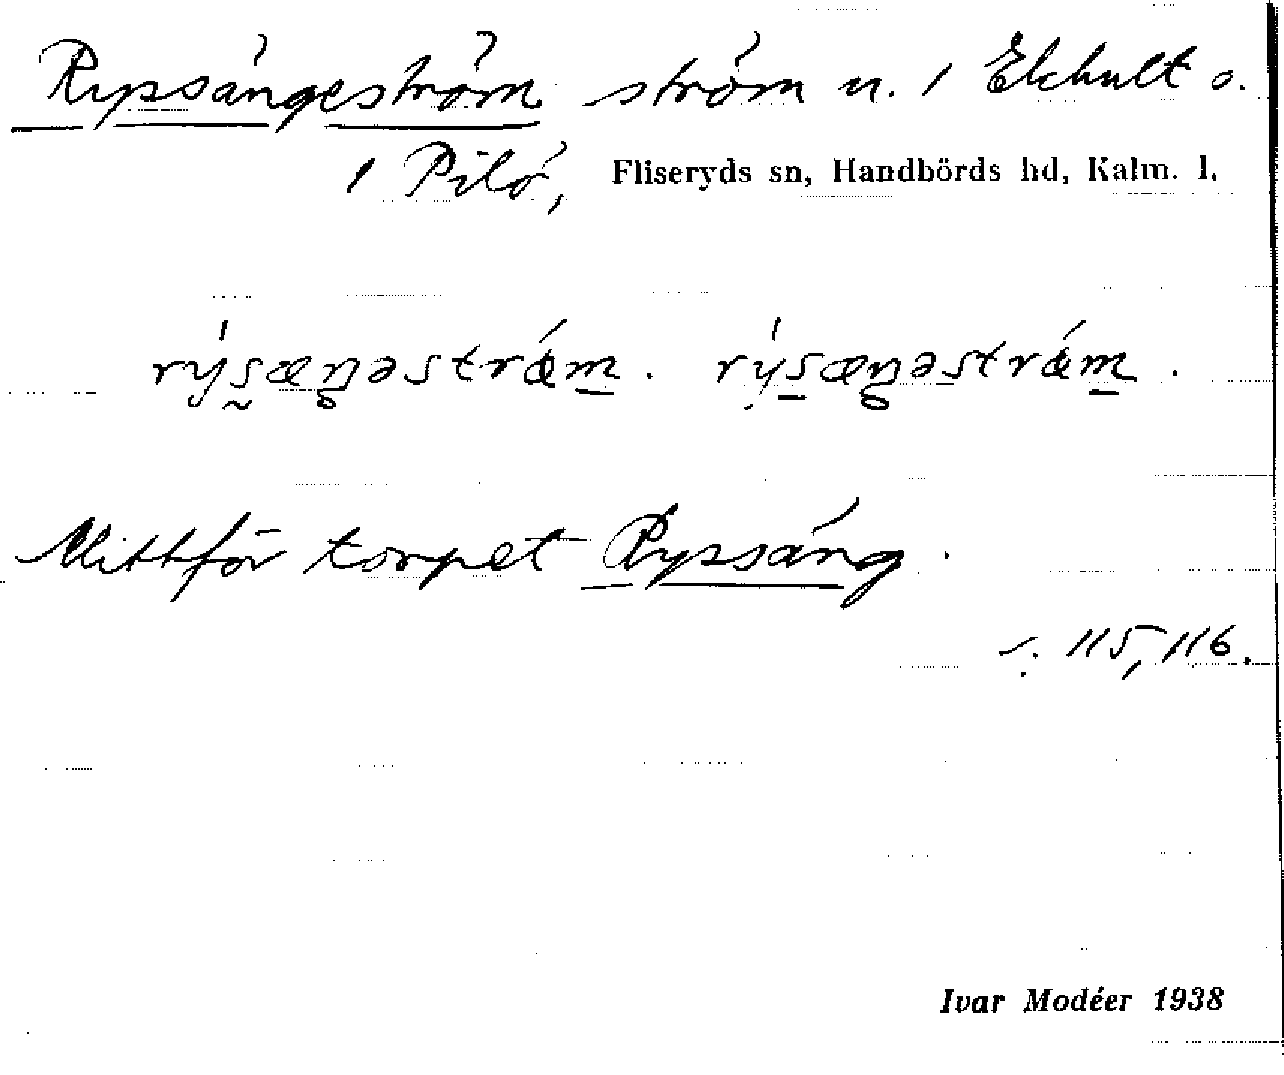 Rypsängeström ström n. / Ekhult o.
/ Pilö, Fliseryds sn, Handbörds hd, Kalm. l.
rýsæŋəstrǿm. rýsæŋəstrǿm.
Mittför torpet Rypsäng.
s. 115, 116.
Ivar Modéer 1938